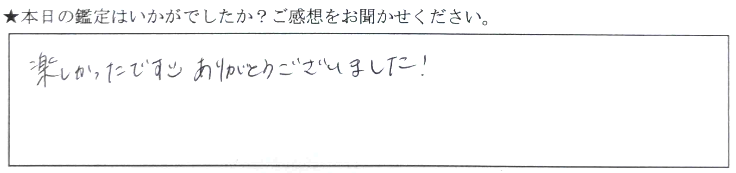 ★本日の鑑定はいかがでしたか？ご感想をお聞かせください。
楽しかったです ありがとうございました！